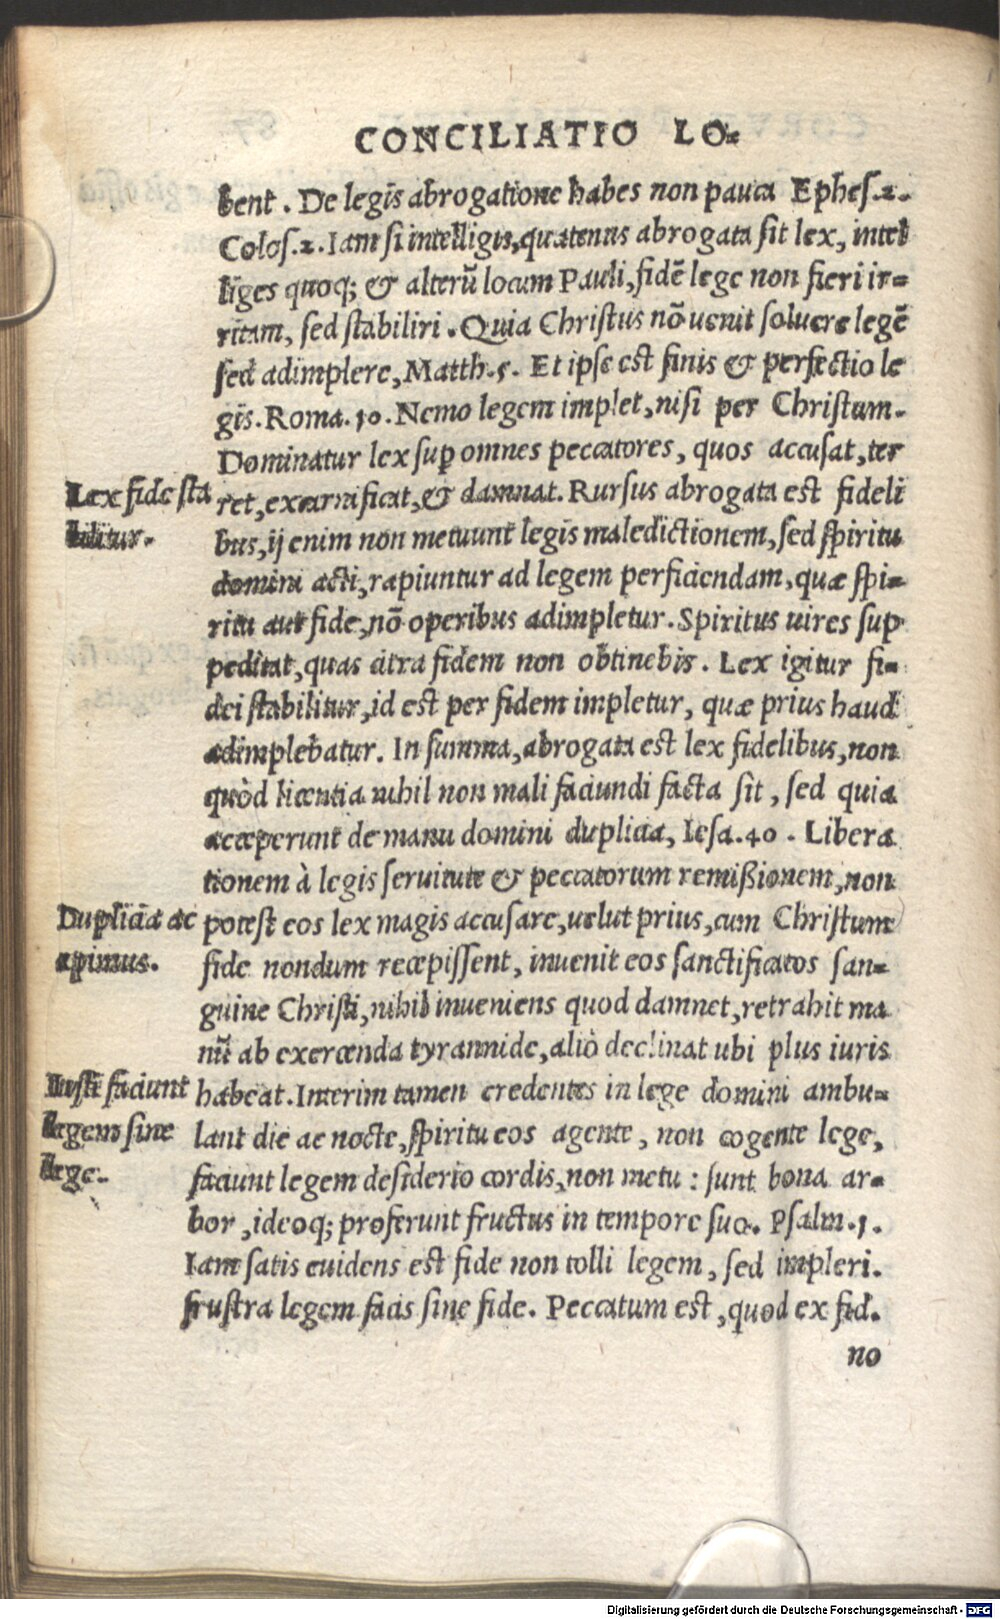 CONCILIATIO LO-
bent. De legis abrogatione habes non pauca Ephes.2.
Colos.2. Iam si intelligis, quatenus abrogata sit lex, intel
liges quoq; & alterũ locum Pauli, fidẽ lege non fieri ir-
ritam, sed stabiliri. Quia Christus nõ uenit soluere legẽ
sed adimplere, Matth.5. Et ipse est finis & perfectio le
gis. Roma.10. Nemo legem implet, nisi per Christum.
Dominatur lex sup omnes peccatores, quos accusat, ter
ret, excarnificat, & damnat. Rursus abrogata est fideli
Lex fide sta
bilitur.
bus, ij enim non metuunt legis maledictionem, sed spiritu
domini acti, rapiuntur ad legem perficiendam, quæ spi-
ritu aut fide, nõ operibus adimpletur. Spiritus uires sup
peditat, quas citra fidem non obtinebis. Lex igitur fi-
dei stabilitur, id est per fidem impletur, quæ prius haud
adimplebatur. In summa, abrogata est lex fidelibus, non
quòd licentia nihil non mali faciundi facta sit, sed quia
acceperunt de manu domini duplicia, Iesa.40. Libera
tionem à legis seruitute & peccatorum remißionem, non
potest eos lex magis accusare, uelut prius, cum Christum
Duplicia ac
cipimus.
fide nondum recepissent, inuenit eos sanctificatos san-
guine Christi, nihil inueniens quod damnet, retrahit ma
nũ ab exercenda tyrannide, aliò declinat ubi plus iuris
habeat. Interim tamen credentes in lege domini ambu-
Iusti faciunt
legem sine
lege.
lant die ac nocte, spiritu eos agente, non cogente lege,
faciunt legem desiderio cordis, non metu: sunt bona ar-
bor, ideoq; proferunt fructus in tempore suo. Psalm.1.
Iam satis euidens est fide non tolli legem, sed impleri.
frustra legem facis sine fide. Peccatum est, quod ex fid.
no
Digitalisierung gefördert durch die Deutsche Forschungsgemeinschaft - DFG